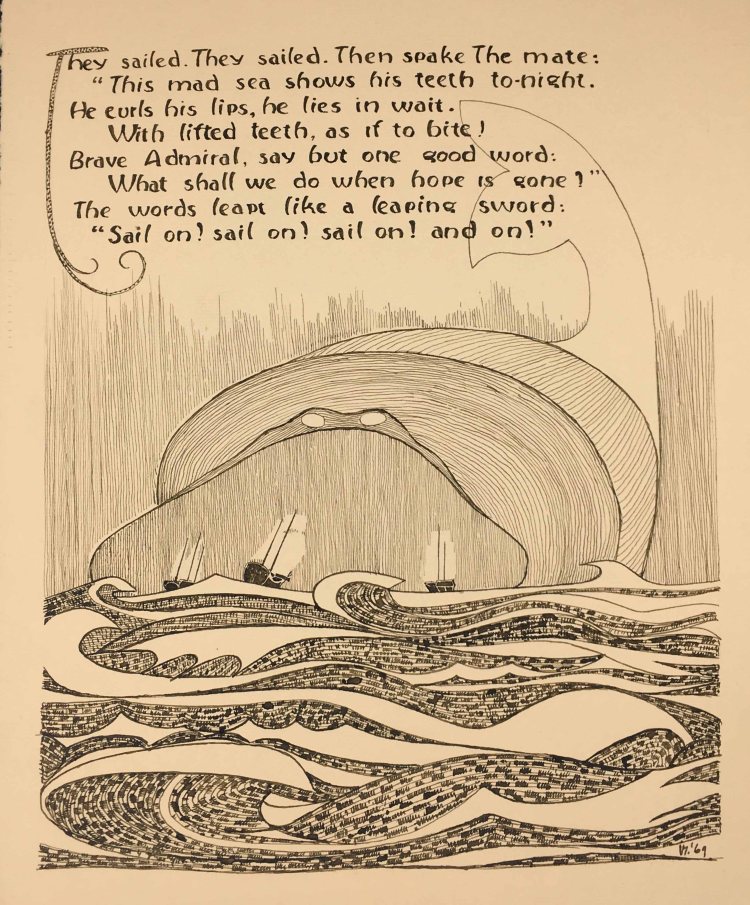 They sailed. They sailed. Then spake The mate:
"This mad sea shows his teeth to-night.
He curls his lips, he lies in wait.
With lifted teeth, as if to bite!
Brave Admiral, say but one good word:
What shall we do when hope is gone?"
The words leapt like a leaping sword:
"Sail on! sail on! sail on! and on!"